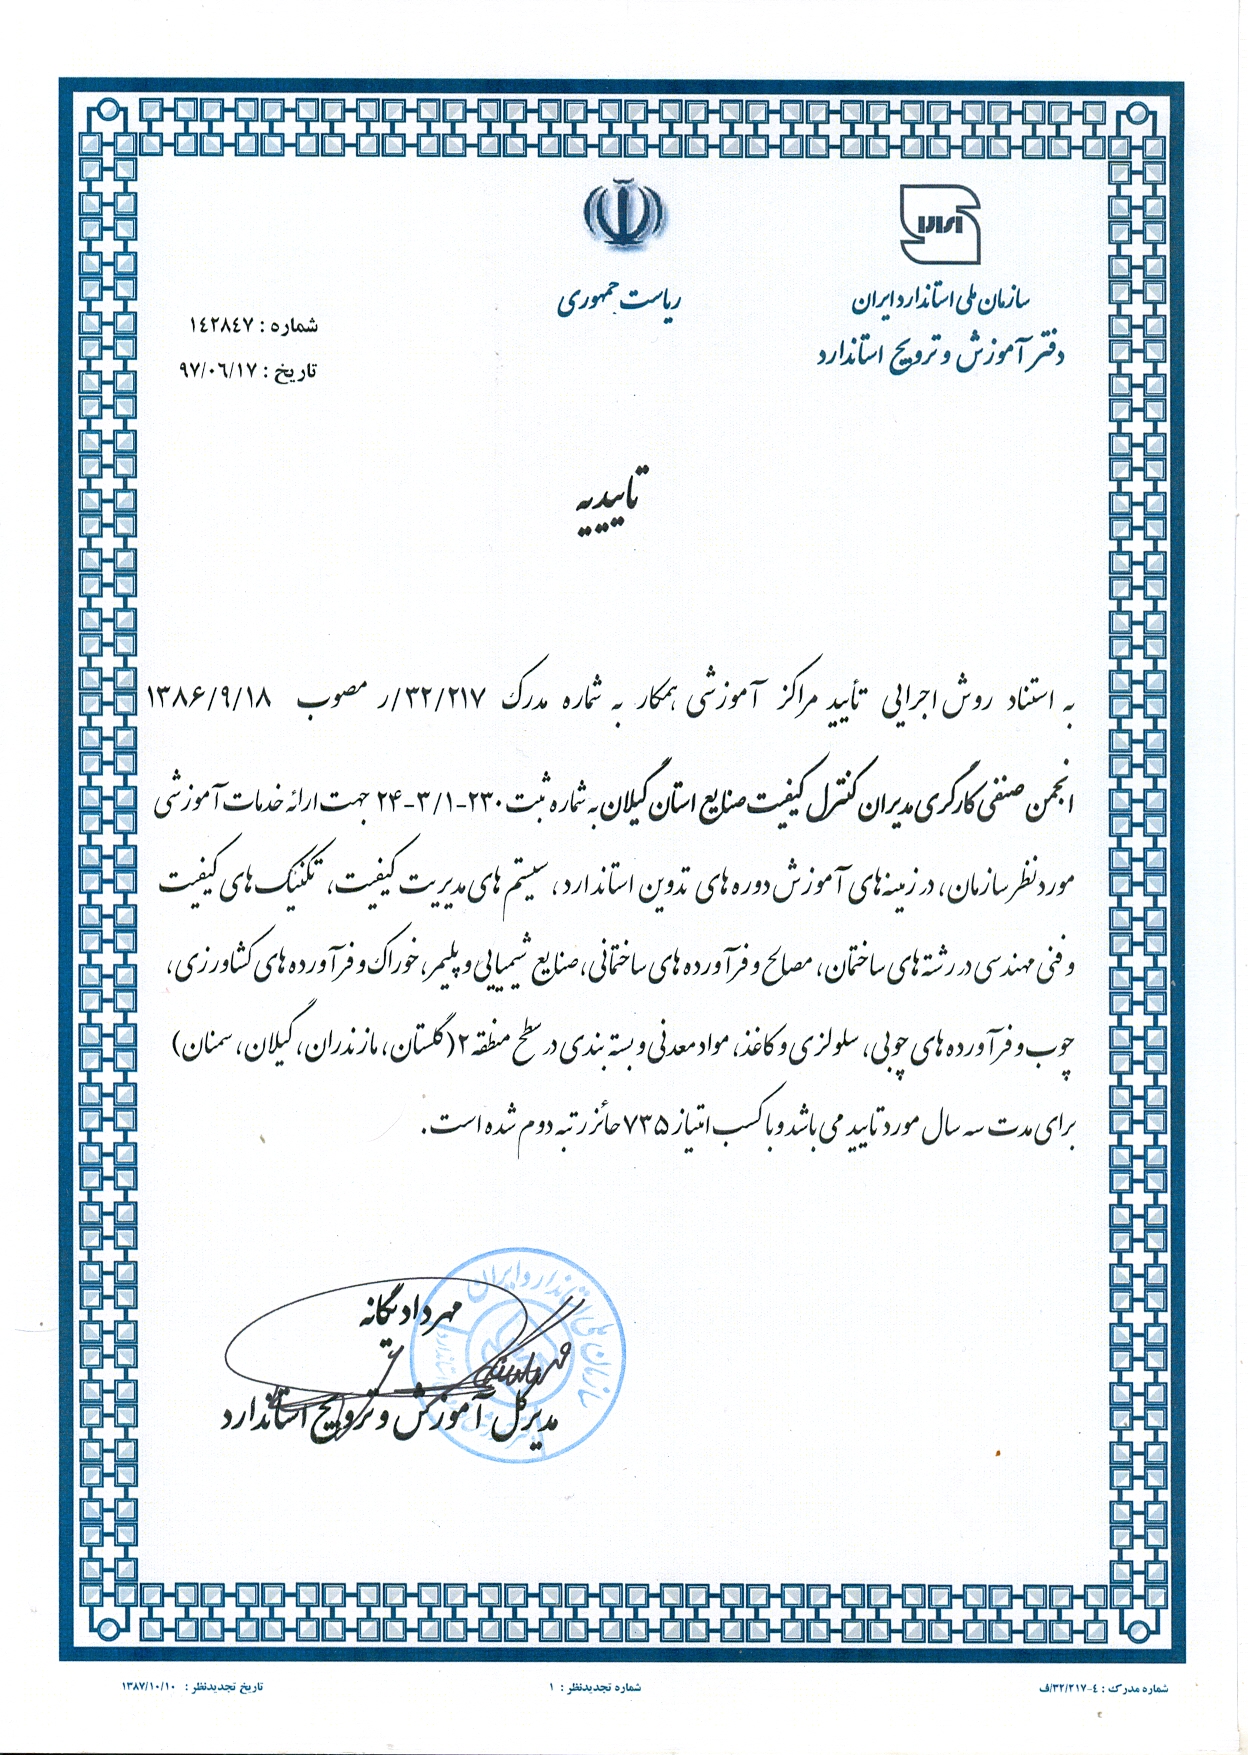 ایران
سازمان ملی استاندارد ایران
دفتر آموزش و ترویج استاندارد
ریاست جمهوری
شماره : ١٤٢٨٤٧
تاریخ : ٩٧/٠٦/١٧
تاییدیه
به استناد روش اجرایی تأیید مراکز آموزشی همکار به شماره مدرک ۳۲/۲۱۷/ر مصوب ۱۳۸۶/۹/۱۸
انجمن صنفی کارگری مدیران کنترل کیفیت صنایع استان گیلان به شماره ثبت ۲۳۰-۳/۱-۲۴ جهت ارائه خدمات آموزشی
مورد نظر سازمان، در زمینه‌های آموزش دوره های تدوین استاندارد، سیستم های مدیریت کیفیت، تکنیک های کیفیت
و فنی مهندسی در رشته های ساختمان، مصالح و فرآورده های ساختمانی، صنایع شیمیایی و پلیمر، خوراک و فرآورده های کشاورزی،
چوب و فرآورده های چوبی، سلولزی و کاغذ، مواد معدنی و بسته بندی در سطح منطقه ۲ (گلستان، مازندران، گیلان، سمنان)
برای مدت سه سال مورد تایید می باشد و با کسب امتیاز ۷۳۵ حائز رتبه دوم شده است.
سازمان ملی استاندارد ایران
مهرداد یگانه
مدیرکل آموزش و ترویج استاندارد
شماره مدرک : ٤-٣٢/٢١٧/ف
شماره تجدیدنظر : ١
تاریخ تجدیدنظر : ١٣٨٧/١٠/١٠